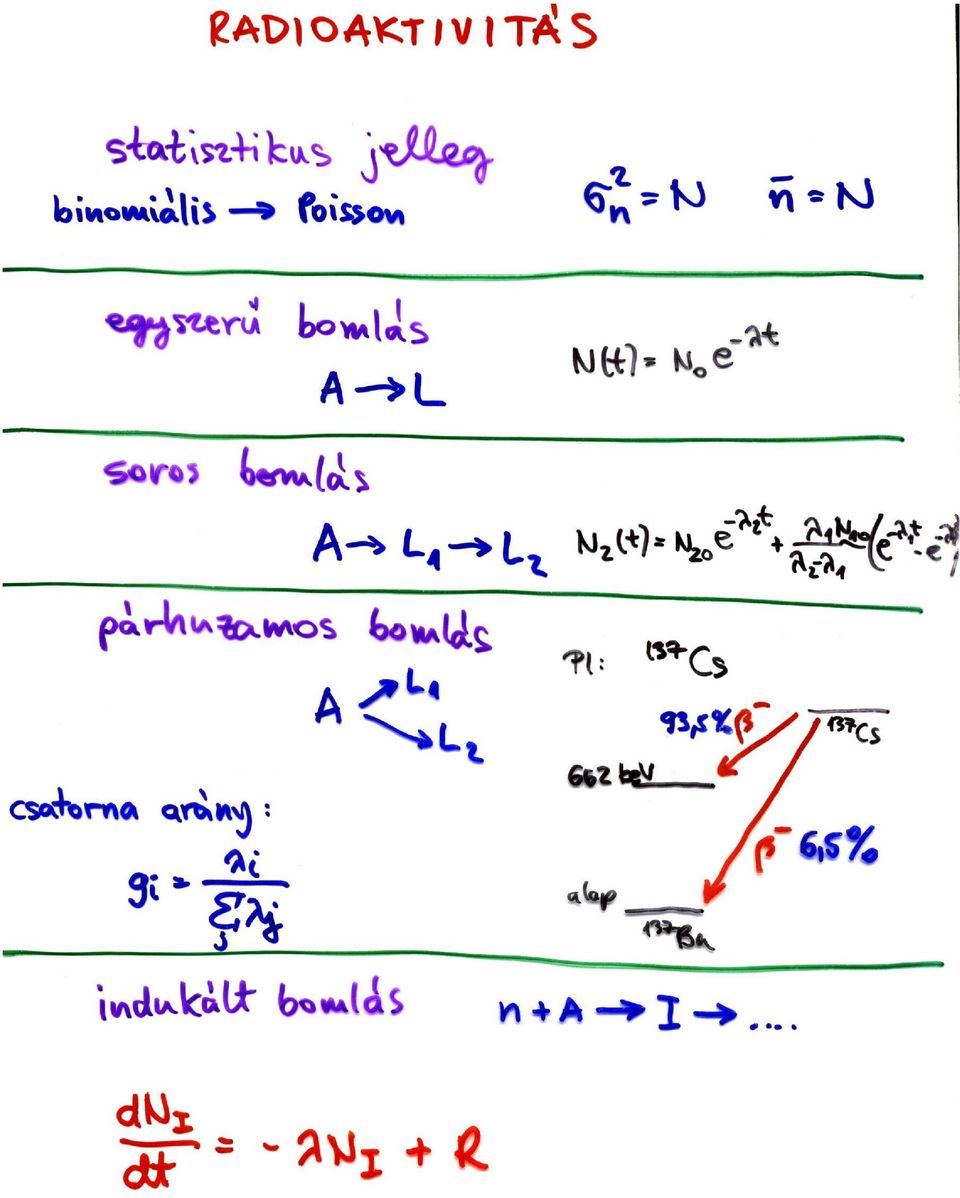 RADIOAKTIVITÁS
statisztikus jelleg
binomiális → Poisson σₙ² = N n̄ = N
egyszerű bomlás
A → L N(t) = N₀ e^(-λt)
soros bomlás
A → L₁ → L₂ N₂(t) = N₂₀ e^(-λ₂t) + λ₁N₁₀/(λ₂-λ₁) (e^(-λ₁t) - e^(-λ
párhuzamos bomlás
Pl: ¹³⁷Cs
A L₁
L₂
93,5% β⁻ ¹³⁷Cs
662 keV
csatorna arány:
β⁻ 6,5%
gᵢ = λᵢ / Σⱼ λⱼ
alap
¹³⁷Ba
indukált bomlás n + A → I → ....
dN_I/dt = - λN_I + R